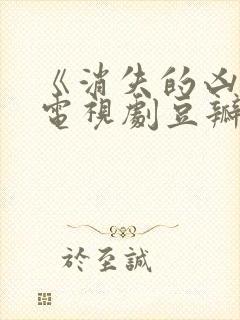 《消失的凶
電視劇豆瓣
於至誠